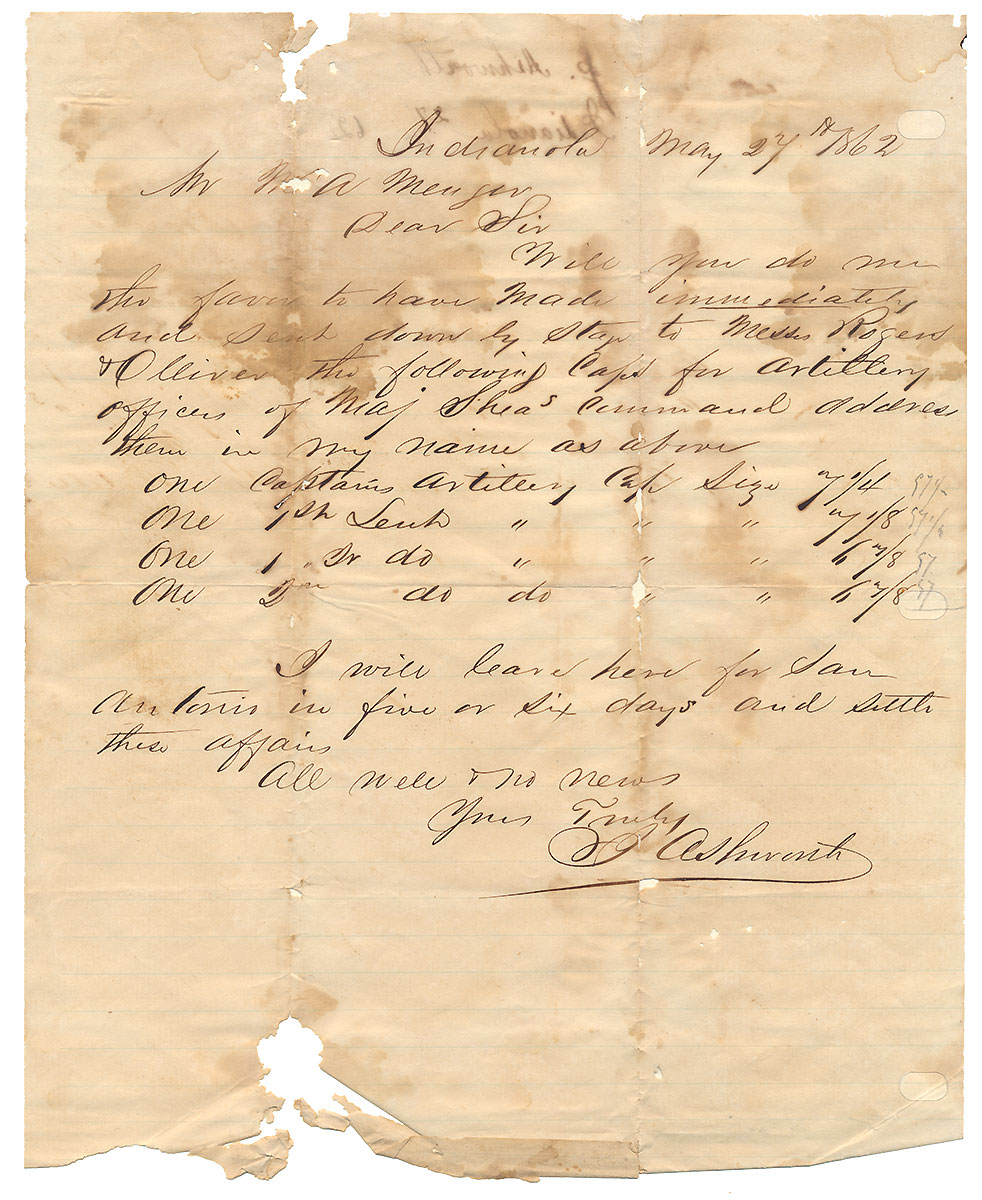 Indianola May 27th 1862
Mr Wm A Menger
Dear Sir
Will you do me
the favor to have made immediately
and sent down by stage to Messrs Rogers
& Olliver the following Caps for Artillery
officers of Maj Shea's Command address
them in my name as above
One Captains Artillery Cap Size 7 1/4
One 1st Leut " " " 7 1/8
One 1 Jr do " " " 6 7/8
One 2nd do do " " 6 7/8
I will leave here for San
Antonio in five or six days and settle
these affairs
All well & no news
Yrs Truly
J Ashworth